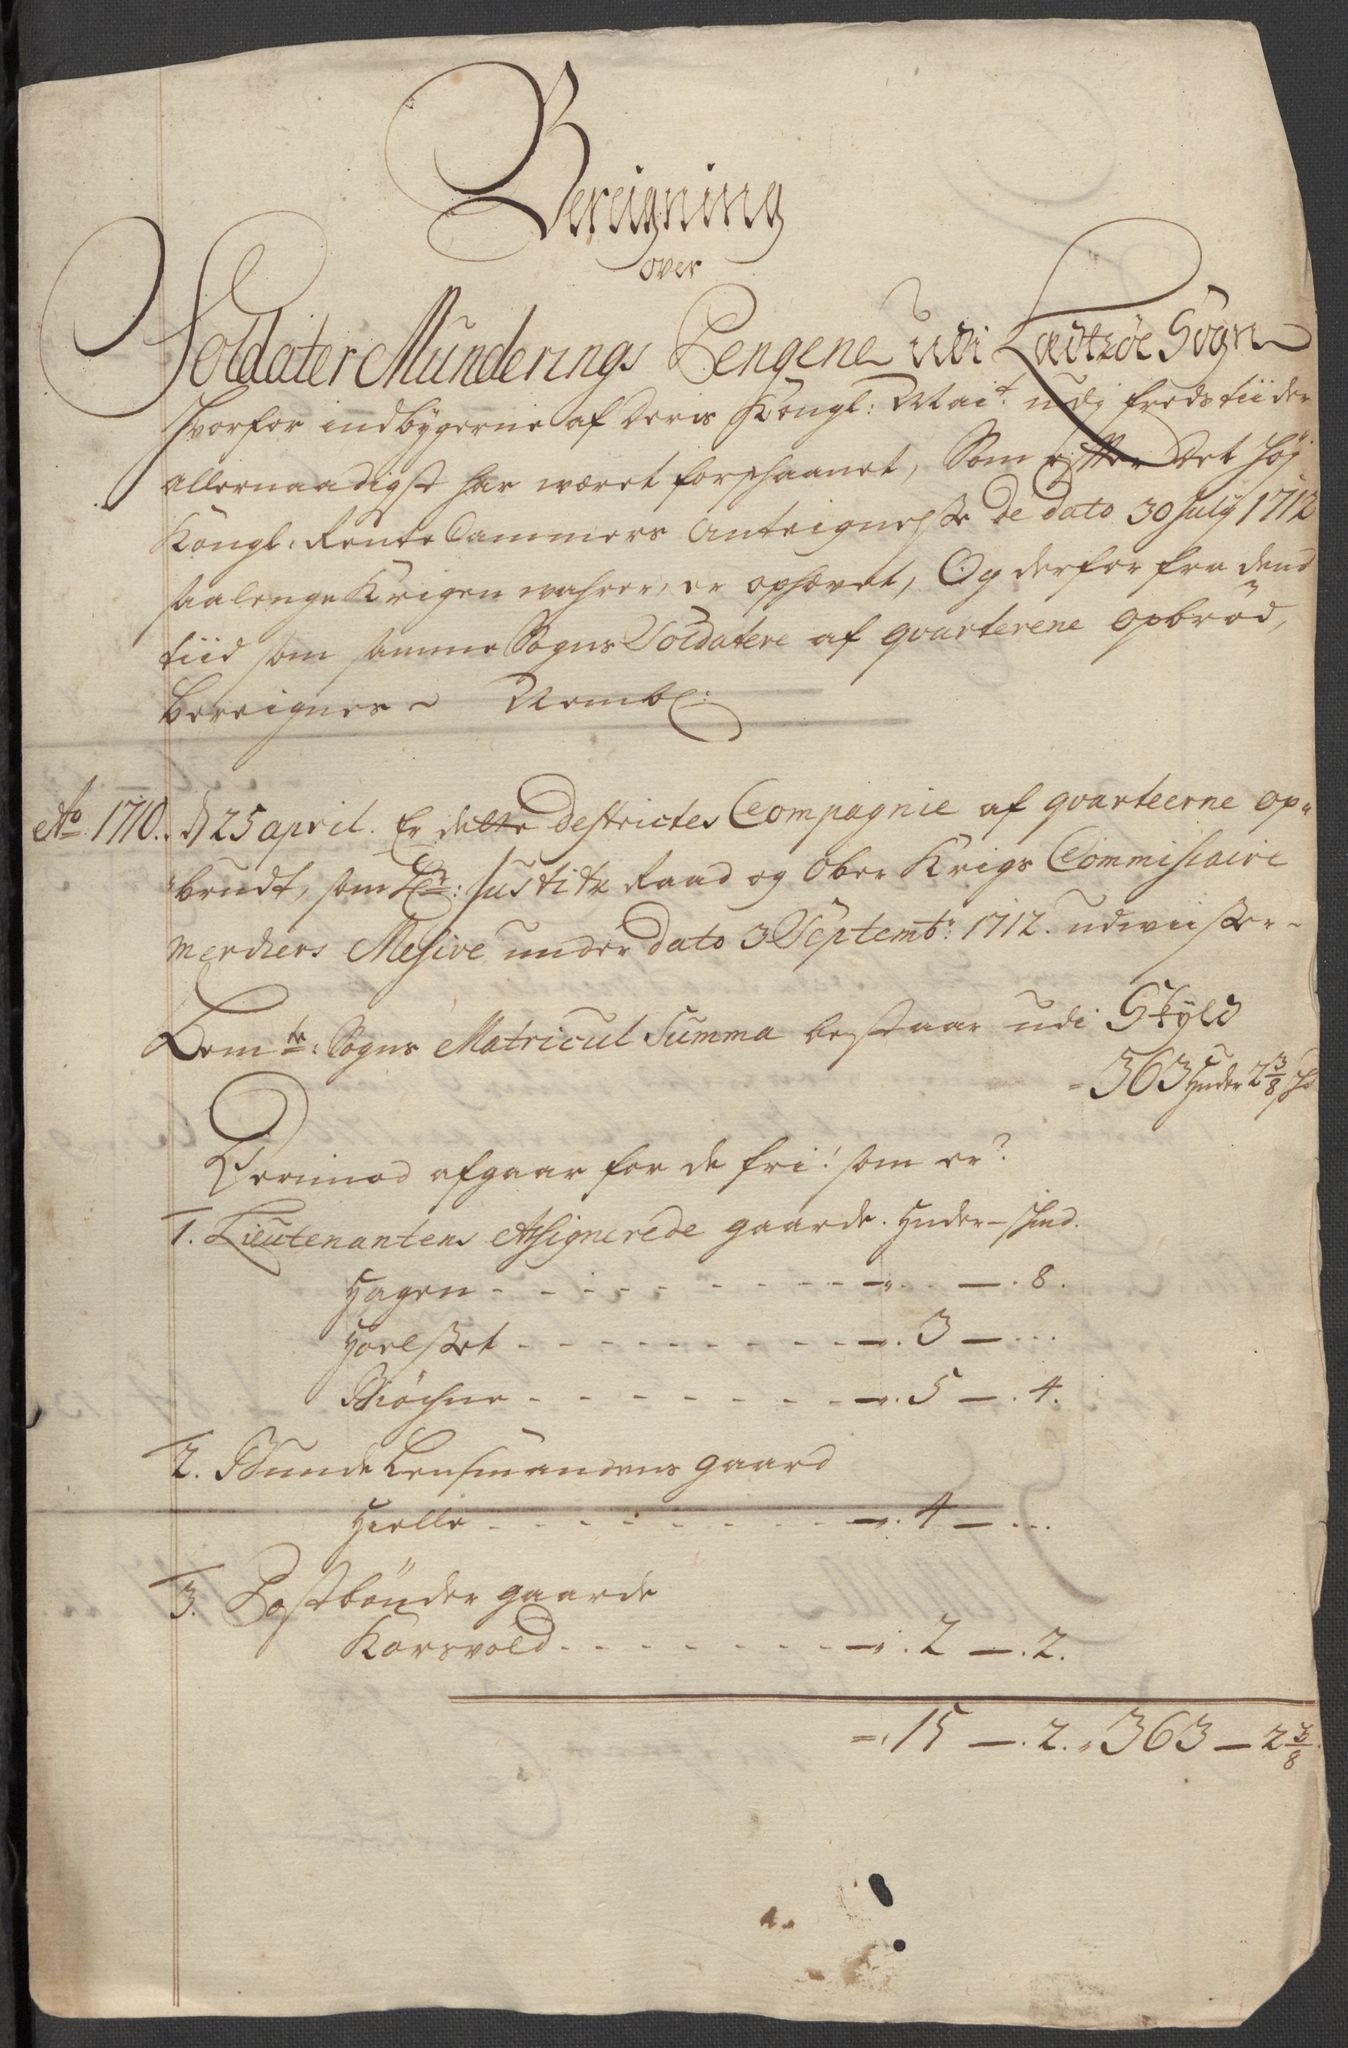 Bereigning
over
Soldater Munderings Pengene udi Ladtzøe Sogn
Hvorfor indbygerne af Deris Kongl: Mait. udj fredstiider
allernaadigst har wæret forschaanet, Som efter Det Høj
Kongl: Rente Cammers Anteignelsse De dato 30 July 1712
saalenge Krigen wahrer, er ophævet, Og derfor fra dend
tiid som samme Sogns Soldatere af qvarterene opbrød,
bereignes ~ Neml:
Ao 1710. d 25 april. Er dette Destrictes Compagnie af qvarteerne op„
brudt, som Hr: Justitz Raad og Ober Krigs Commissaire
merchers Messive under dato 3 Septembr: 1712. udwiisser ~
Bemte: Sogns Matricul Summa bestaar udi Skyld
= 363 Huder 2 3/8 sk
Derimod afgaar for de fri: som er:
1. Lieutenantens Assignerede gaarde. Huder — skind.
Hagen - - - - - - - — . 8.
Horlsset - - - - - - - 3 — ...
Miøchne - - - - - - - 5 — . 4.
2. Bunde Lensmandens gaard
Hielle - - - - - - - 4 — ...
3. Postbønder gaarde
Korsvold - - - - - - - 2 — . 2.
= 15 — . 2. „ 363 — 2 3/8.